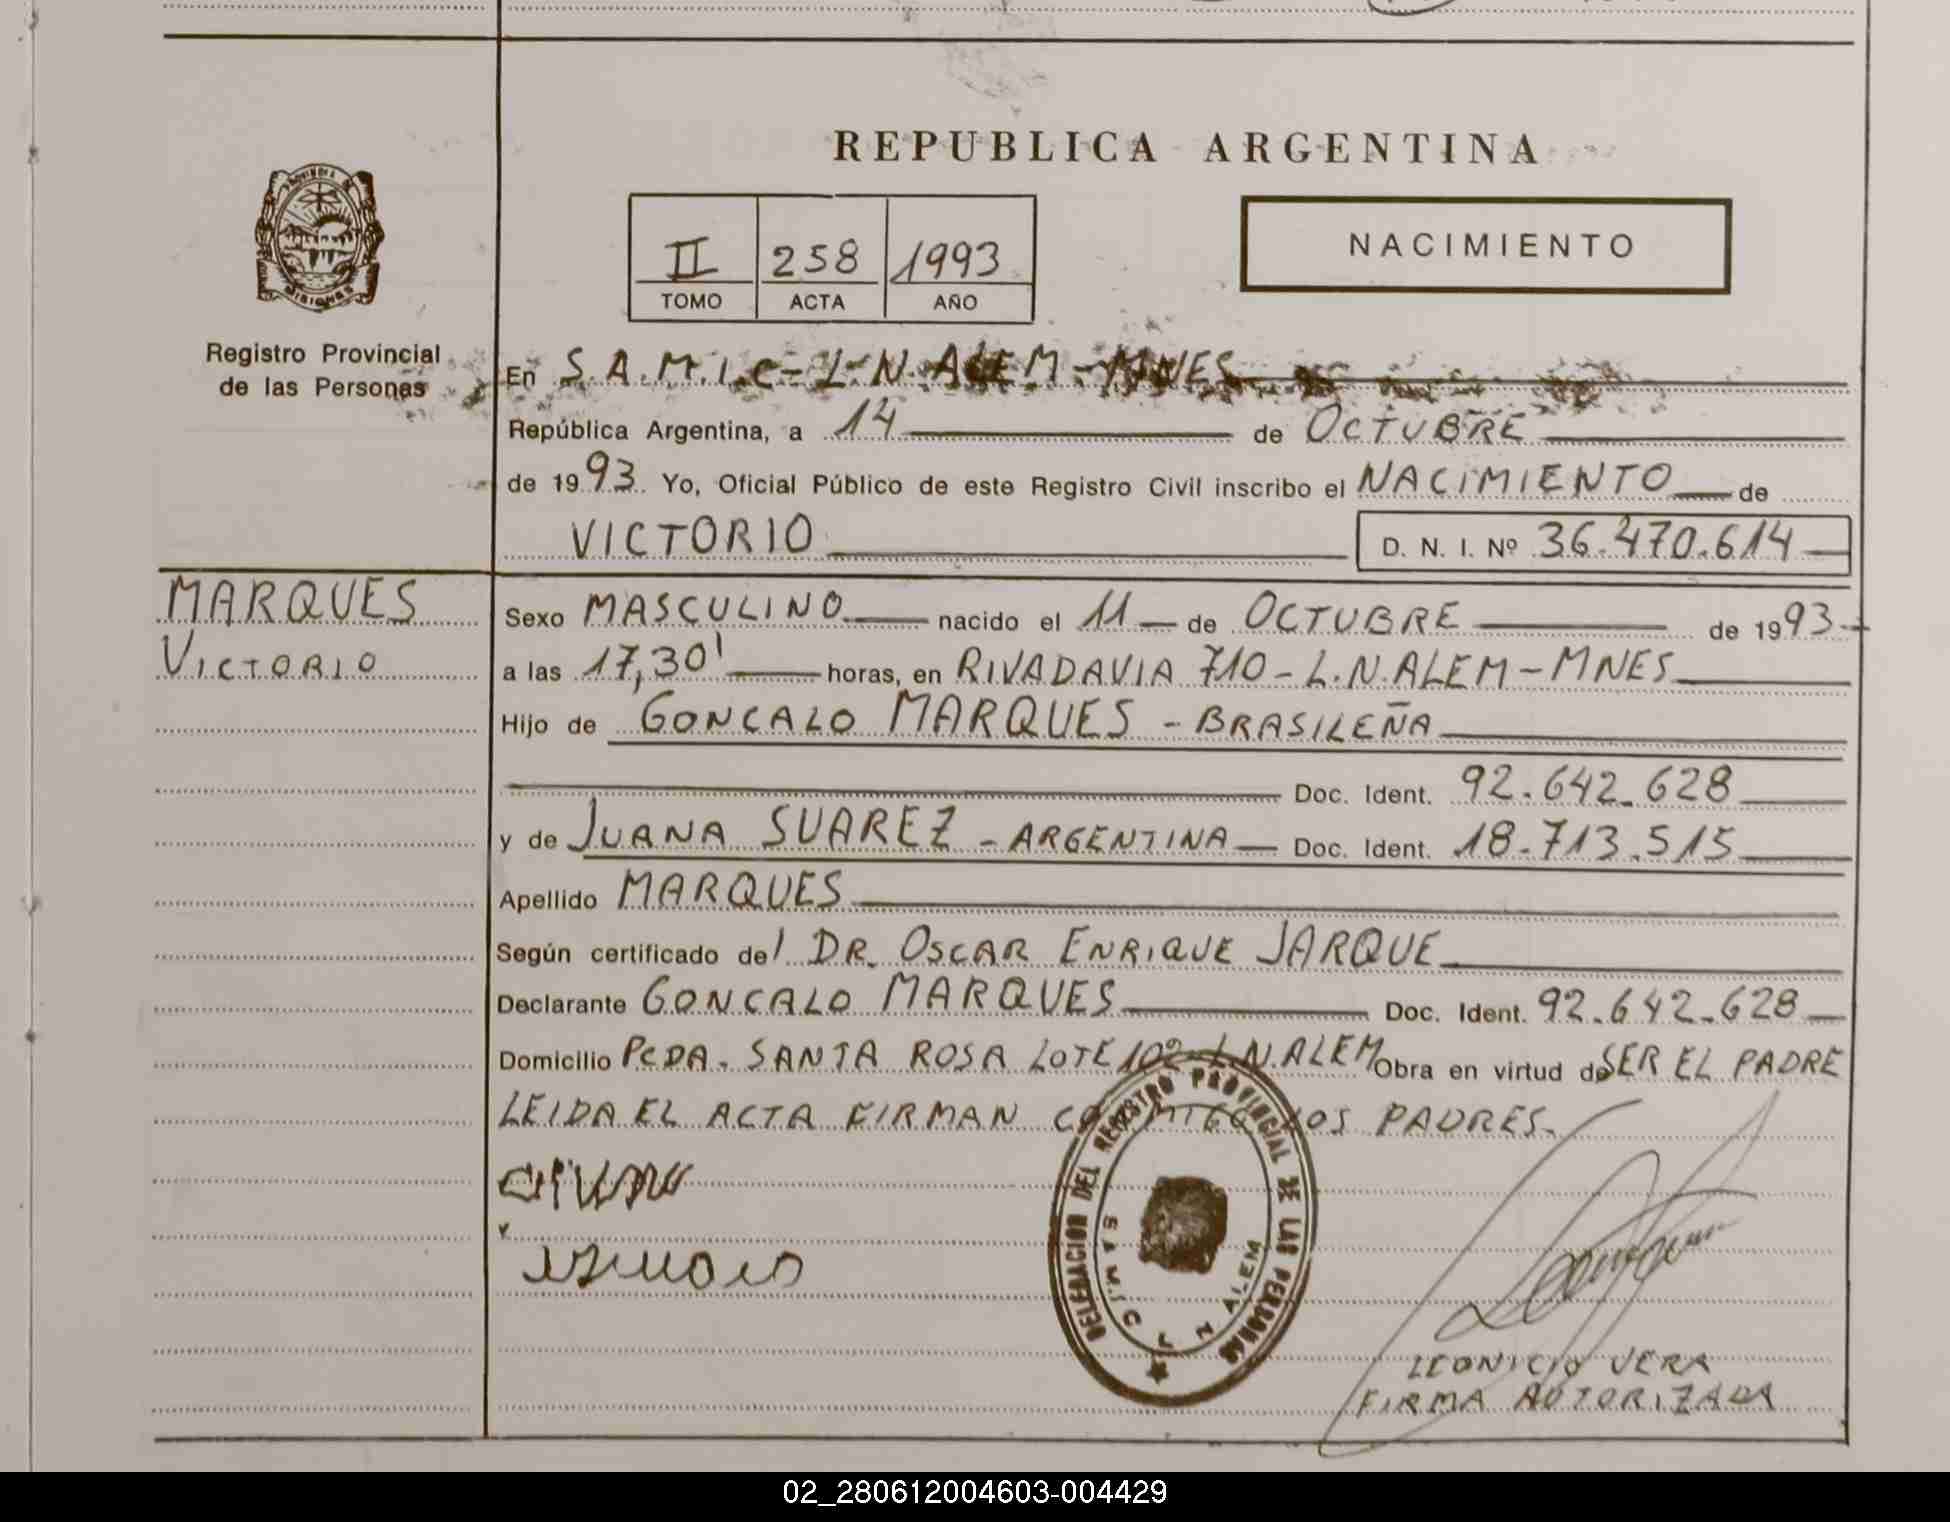 REPUBLICA ARGENTINA
PROVINCIA DE
MISIONES
Registro Provincial
de las Personas
II 258 1993
TOMO ACTA AÑO
NACIMIENTO
En S.A.M.I.C - L.N.ALEM - MNES
República Argentina, a 14 de OCTUBRE
de 1993. Yo, Oficial Público de este Registro Civil inscribo el NACIMIENTO de
VICTORIO D. N. I. Nº 36.470.614
MARQUES
VICTORIO
Sexo MASCULINO nacido el 11 de OCTUBRE de 1993
a las 17,30' horas, en RIVADAVIA 710 - L.N.ALEM - MNES
Hijo de GONCALO MARQUES - BRASILEÑA
Doc. Ident. 92.642.628
y de JUANA SUAREZ - ARGENTINA Doc. Ident. 18.713.515
Apellido MARQUES
Según certificado del DR. OSCAR ENRIQUE JARQUE
Declarante GONCALO MARQUES Doc. Ident. 92.642.628
Domicilio PCDA. SANTA ROSA LOTE 102 - L.N.ALEM Obra en virtud de SER EL PADRE
LEIDA EL ACTA FIRMAN CONMIGO LOS PADRES.
DELEGACION DEL REGISTRO PROVINCIAL DE LAS PERSONAS
S A M I C L N ALEM
LEONICIO VERA
FIRMA AUTORIZADA
02_280612004603-004429